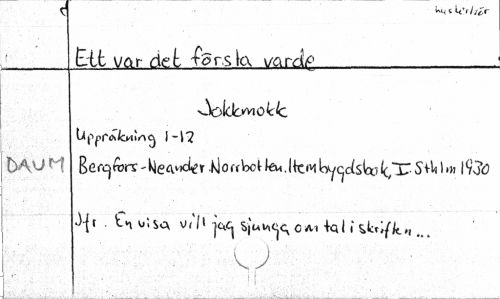 Ett var det första varde
Jokkmokk
Uppräkning 1-12
DAUM
Bergfors-Neander. Norrbotten. Hembygdsbok, I. Sthlm 1930
Jfr. En visa vill jag sjunga om tal i skriften...